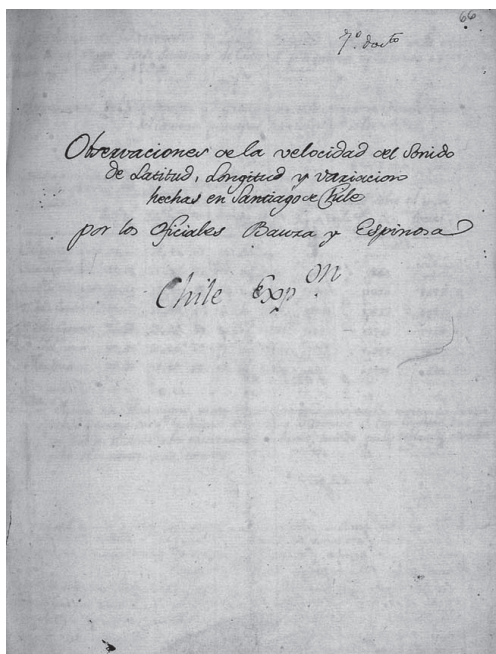 66
7.º docto
Observaciones de la velocidad del Sonido
de Latitud, Longitud y variacion
hechas en Santiago de Chile
por los Oficiales Bauza y Espinosa
Chile Expon.